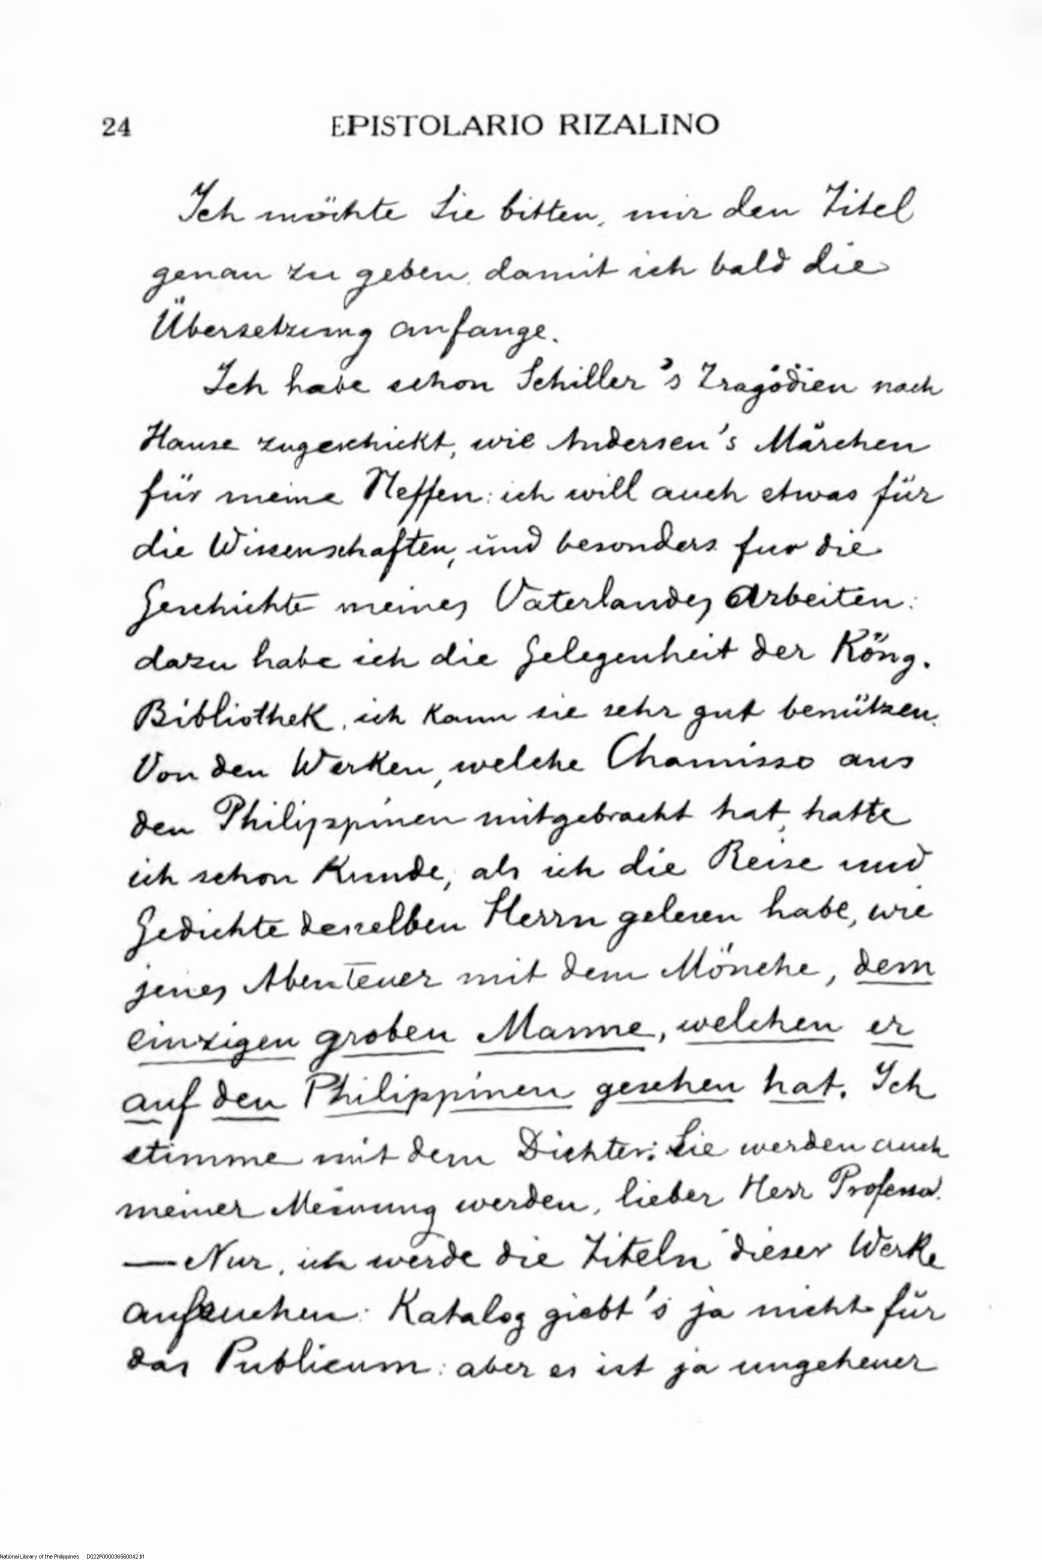 24 EPISTOLARIO RIZALINO
Ich möchte Sie bitten, mir den Titel
genau zu geben, damit ich bald die
Übersetzung anfange.
Ich habe schon Schiller's Tragödien nach
Hause zugeschickt, wie Andersen's Märchen
für meine Neffen: ich will auch etwas für
die Wissenschaften, und besonders fur die
Geschichte meines Vaterlandes Arbeiten:
dazu habe ich die Gelegenheit der Köng.
Bibliothek, ich kann sie sehr gut benützen.
Von den Werken, welche Chamisso aus
den Philippinen mitgebracht hat, hatte
ich schon Kunde, als ich die Reise und
Gedichte desselben Herrn gelesen habe, wie
jenes Abenteuer mit dem Mönche, dem
einzigen groben Manne, welchen er
auf den Philippinen gesehen hat. Ich
stimme mit dem Dichter: Sie werden auch
meiner Meinung werden, lieber Herr Professor.
— Nur, ich werde die Titeln dieser Werke
aufsuchen: Katalog giebt's ja nicht für
das Publicum: aber es ist ja ungeheuer
National Library of the Philippines